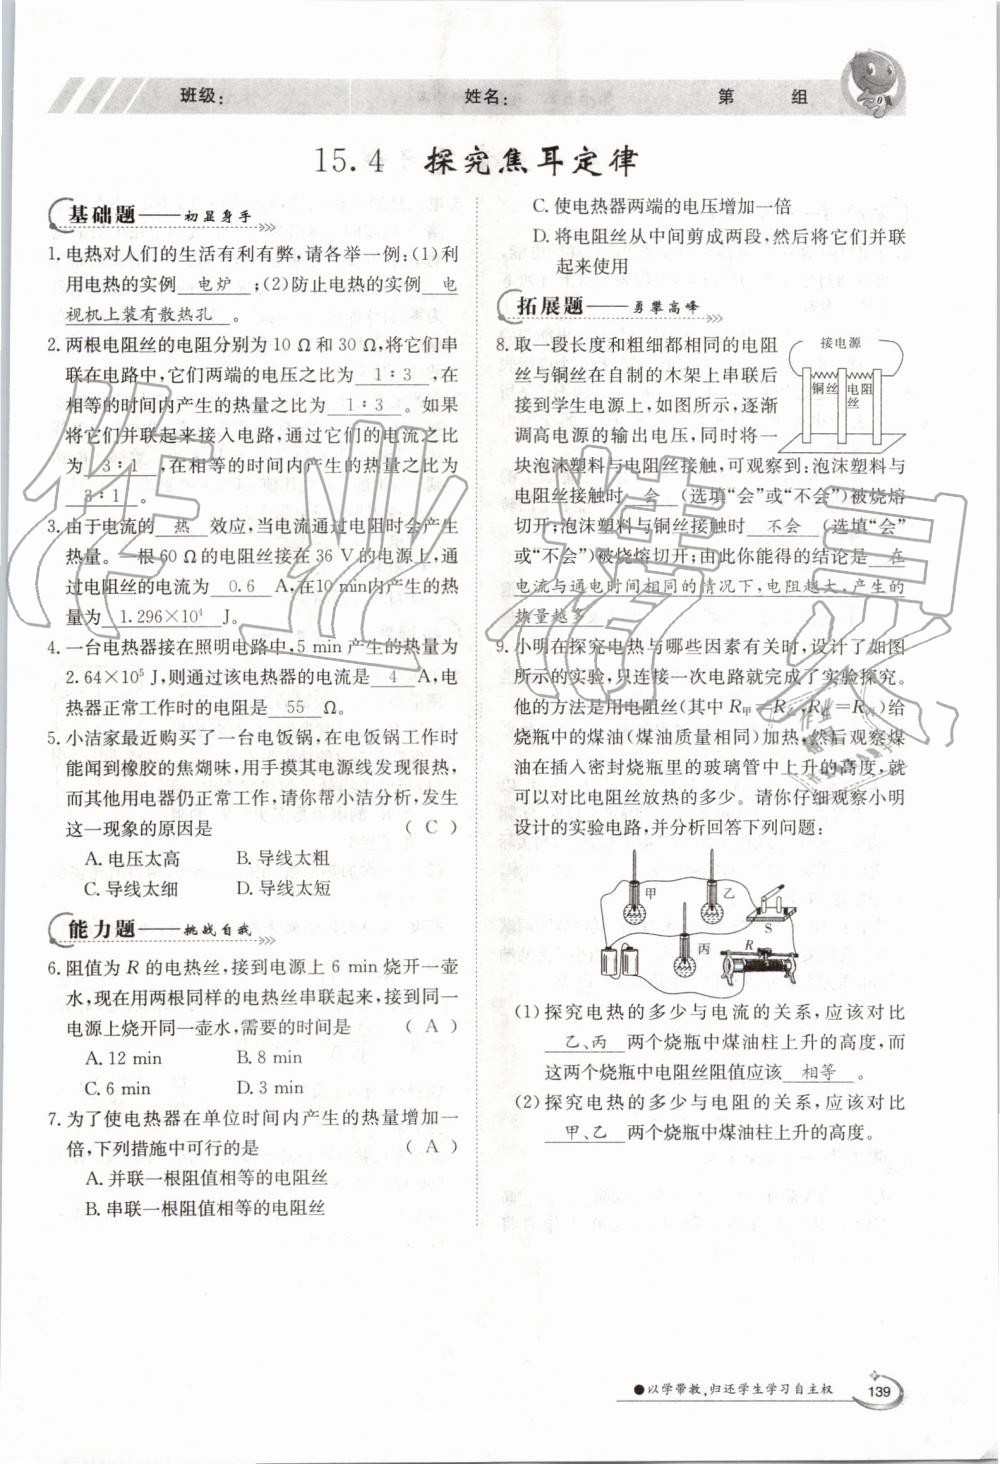 班级: 姓名: 第 组
15.4 探究焦耳定律
基础题——初显身手
1. 电热对人们的生活有利有弊,请各举一例:(1)利
用电热的实例 电炉 ;(2)防止电热的实例 电
视机上装有散热孔 。
2. 两根电阻丝的电阻分别为 10 Ω 和 30 Ω,将它们串
联在电路中,它们两端的电压之比为 1∶3 ,在
相等的时间内产生的热量之比为 1∶3 。如果
将它们并联起来接入电路,通过它们的电流之比
为 3∶1 ,在相等的时间内产生的热量之比为
3∶1 。
3. 由于电流的 热 效应,当电流通过电阻时会产生
热量。一根 60 Ω 的电阻丝接在 36 V 的电源上,通
过电阻丝的电流为 0.6 A,在 10 min 内产生的热
量为 1.296×10⁴ J。
4. 一台电热器接在照明电路中,5 min 产生的热量为
2.64×10⁵ J,则通过该电热器的电流是 4 A,电
热器正常工作时的电阻是 55 Ω。
5. 小洁家最近购买了一台电饭锅,在电饭锅工作时
能闻到橡胶的焦煳味,用手摸其电源线发现很热,
而其他用电器仍正常工作,请你帮小洁分析,发生
这一现象的原因是 ( C )
A. 电压太高 B. 导线太粗
C. 导线太细 D. 导线太短
能力题——挑战自我
6. 阻值为 R 的电热丝,接到电源上 6 min 烧开一壶
水,现在用两根同样的电热丝串联起来,接到同一
电源上烧开同一壶水,需要的时间是 ( A )
A. 12 min B. 8 min
C. 6 min D. 3 min
7. 为了使电热器在单位时间内产生的热量增加一
倍,下列措施中可行的是 ( A )
A. 并联一根阻值相等的电阻丝
B. 串联一根阻值相等的电阻丝
C. 使电热器两端的电压增加一倍
D. 将电阻丝从中间剪成两段,然后将它们并联
起来使用
拓展题——勇攀高峰
8. 取一段长度和粗细都相同的电阻
丝与铜丝在自制的木架上串联后
接到学生电源上,如图所示,逐渐
调高电源的输出电压,同时将一
块泡沫塑料与电阻丝接触,可观察到:泡沫塑料与
电阻丝接触时 会 (选填“会”或“不会”)被烧熔
切开;泡沫塑料与铜丝接触时 不会 (选填“会”
或“不会”)被烧熔切开;由此你能得的结论是 在
电流与通电时间相同的情况下,电阻越大,产生的
热量越多
接电源
铜丝 电阻
丝
9. 小明在探究电热与哪些因素有关时,设计了如图
所示的实验,只连接一次电路就完成了实验探究。
他的方法是用电阻丝(其中 R甲=R乙,R乙=R丙)给
烧瓶中的煤油(煤油质量相同)加热,然后观察煤
油在插入密封烧瓶里的玻璃管中上升的高度,就
可以对比电阻丝放热的多少。请你仔细观察小明
设计的实验电路,并分析回答下列问题:
甲 乙
S
丙 R
(1) 探究电热的多少与电流的关系,应该对比
乙、丙 两个烧瓶中煤油柱上升的高度,而
这两个烧瓶中电阻丝阻值应该 相等 。
(2) 探究电热的多少与电阻的关系,应该对比
甲、乙 两个烧瓶中煤油柱上升的高度。
●以学带教,归还学生学习自主权
139
作业精灵